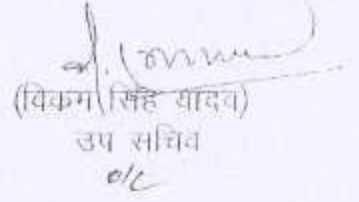 (विक्रम सिंह यादव)
उप सचिव
o/c